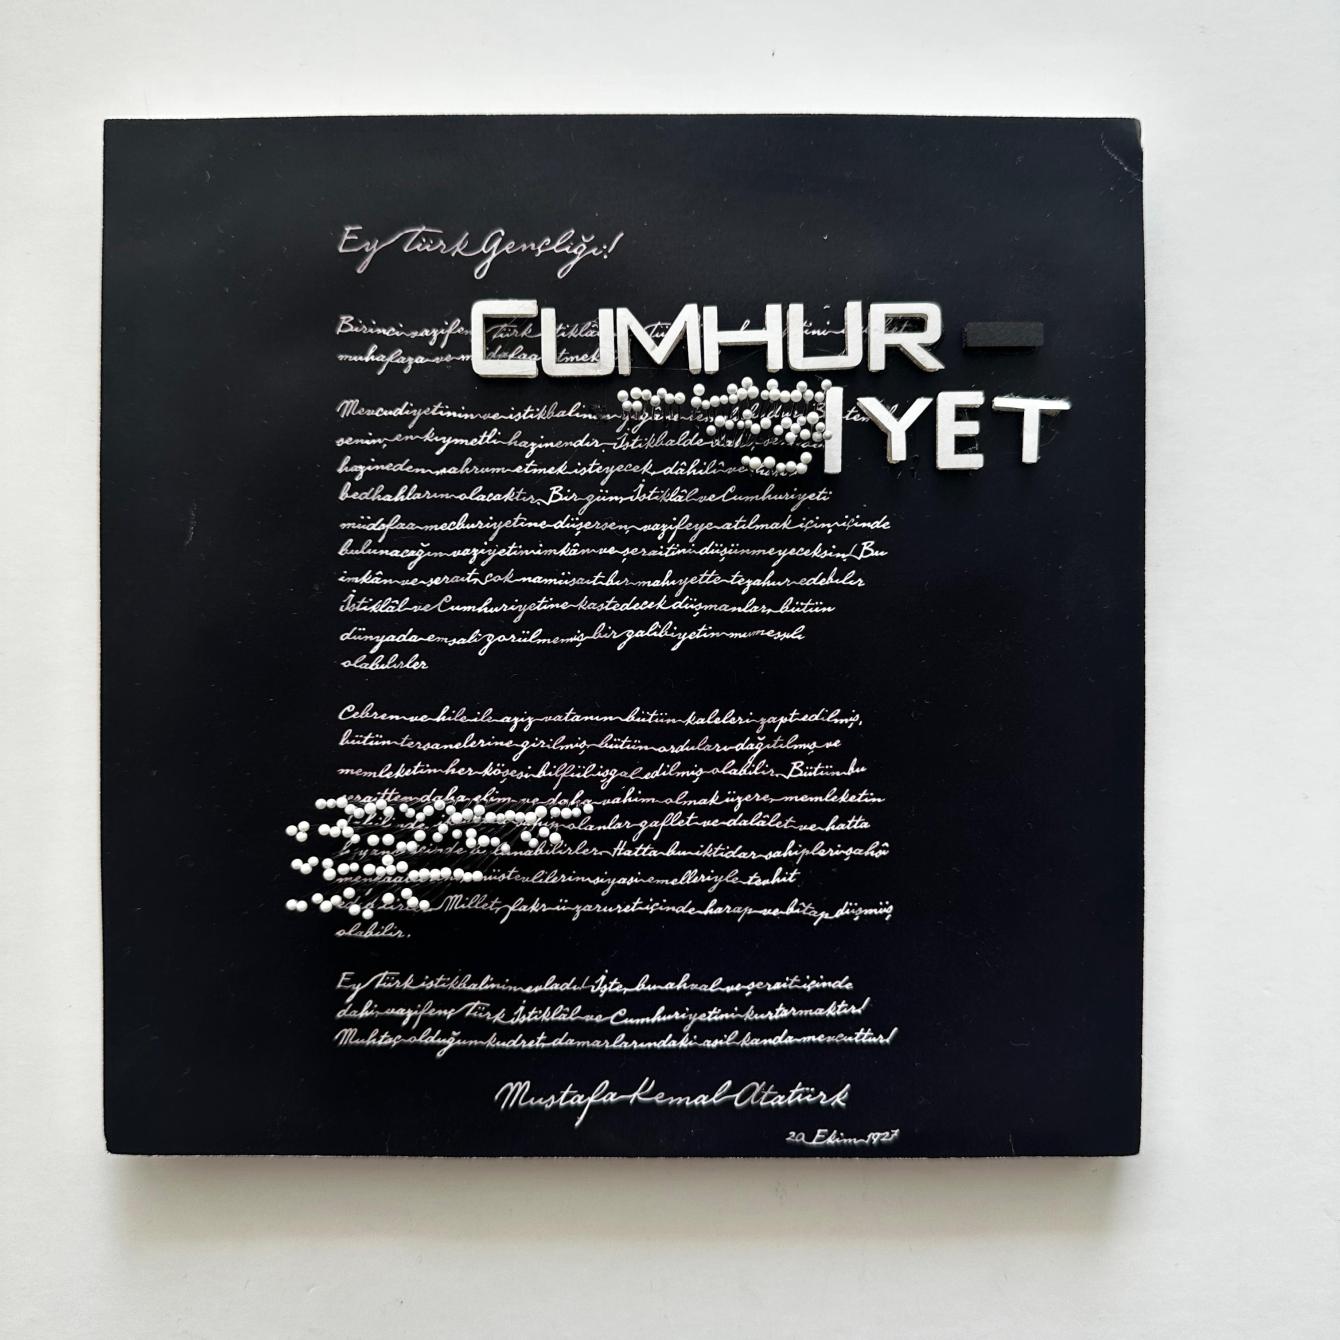 Ey Türk Gençliği!
CUMHUR-
IYET
Birinci vazifen Türk
muhafaza ve etmek
Mevcudiyetinin ve istikbalinin
senin en kıymetli hazinendir İstikbalde
hazineden mahrum etmek isteyecek dâhilî ve
bedhahların olacaktır. Bir gün, İstiklâl ve Cumhuriyeti
müdafaa mecburiyetine düşersen, vazifeye atılmak için içinde
bulunacağın vaziyetin imkân ve şeraitini düşünmeyeceksin! Bu
imkân ve şerait, çok namüsait bir mahiyette tezahur edebilir
İstiklâl ve Cumhuriyetine kastedecek düşmanlar, bütün
dünyada emsali görülmemiş bir galibiyetin mumessılı
olabılırler
Cebren ve hile ile aziz vatanın bütün kaleleri zapt edilmiş,
bütün tersanelerine girilmiş bütün orduları dağıtılmış ve
memleketin her köşesi bilfiil işgal edilmiş olabilir. Bütün bu
şeraitten daha elim ve daha vahim olmak üzere memleketin
olanlar gaflet ve dalâlet ve hatta
içinde bulunabilirler Hatta bu iktidar sahipleri şahsî
müstevlilerin siyasi emelleriyle tevhit
Millet, fakr ü zaruret içinde harap ve bîtap düşmüş
olabilir.
Ey Türk istikbalinin evladı! İşte, bu ahval ve şerait içinde
dahi vazifen; Türk İstiklâl ve Cumhuriyetini kurtarmaktır!
Muhtaç olduğun kudret damarlarındaki asil kanda mevcuttur!
Mustafa Kemal Atatürk
20 Ekim 1927